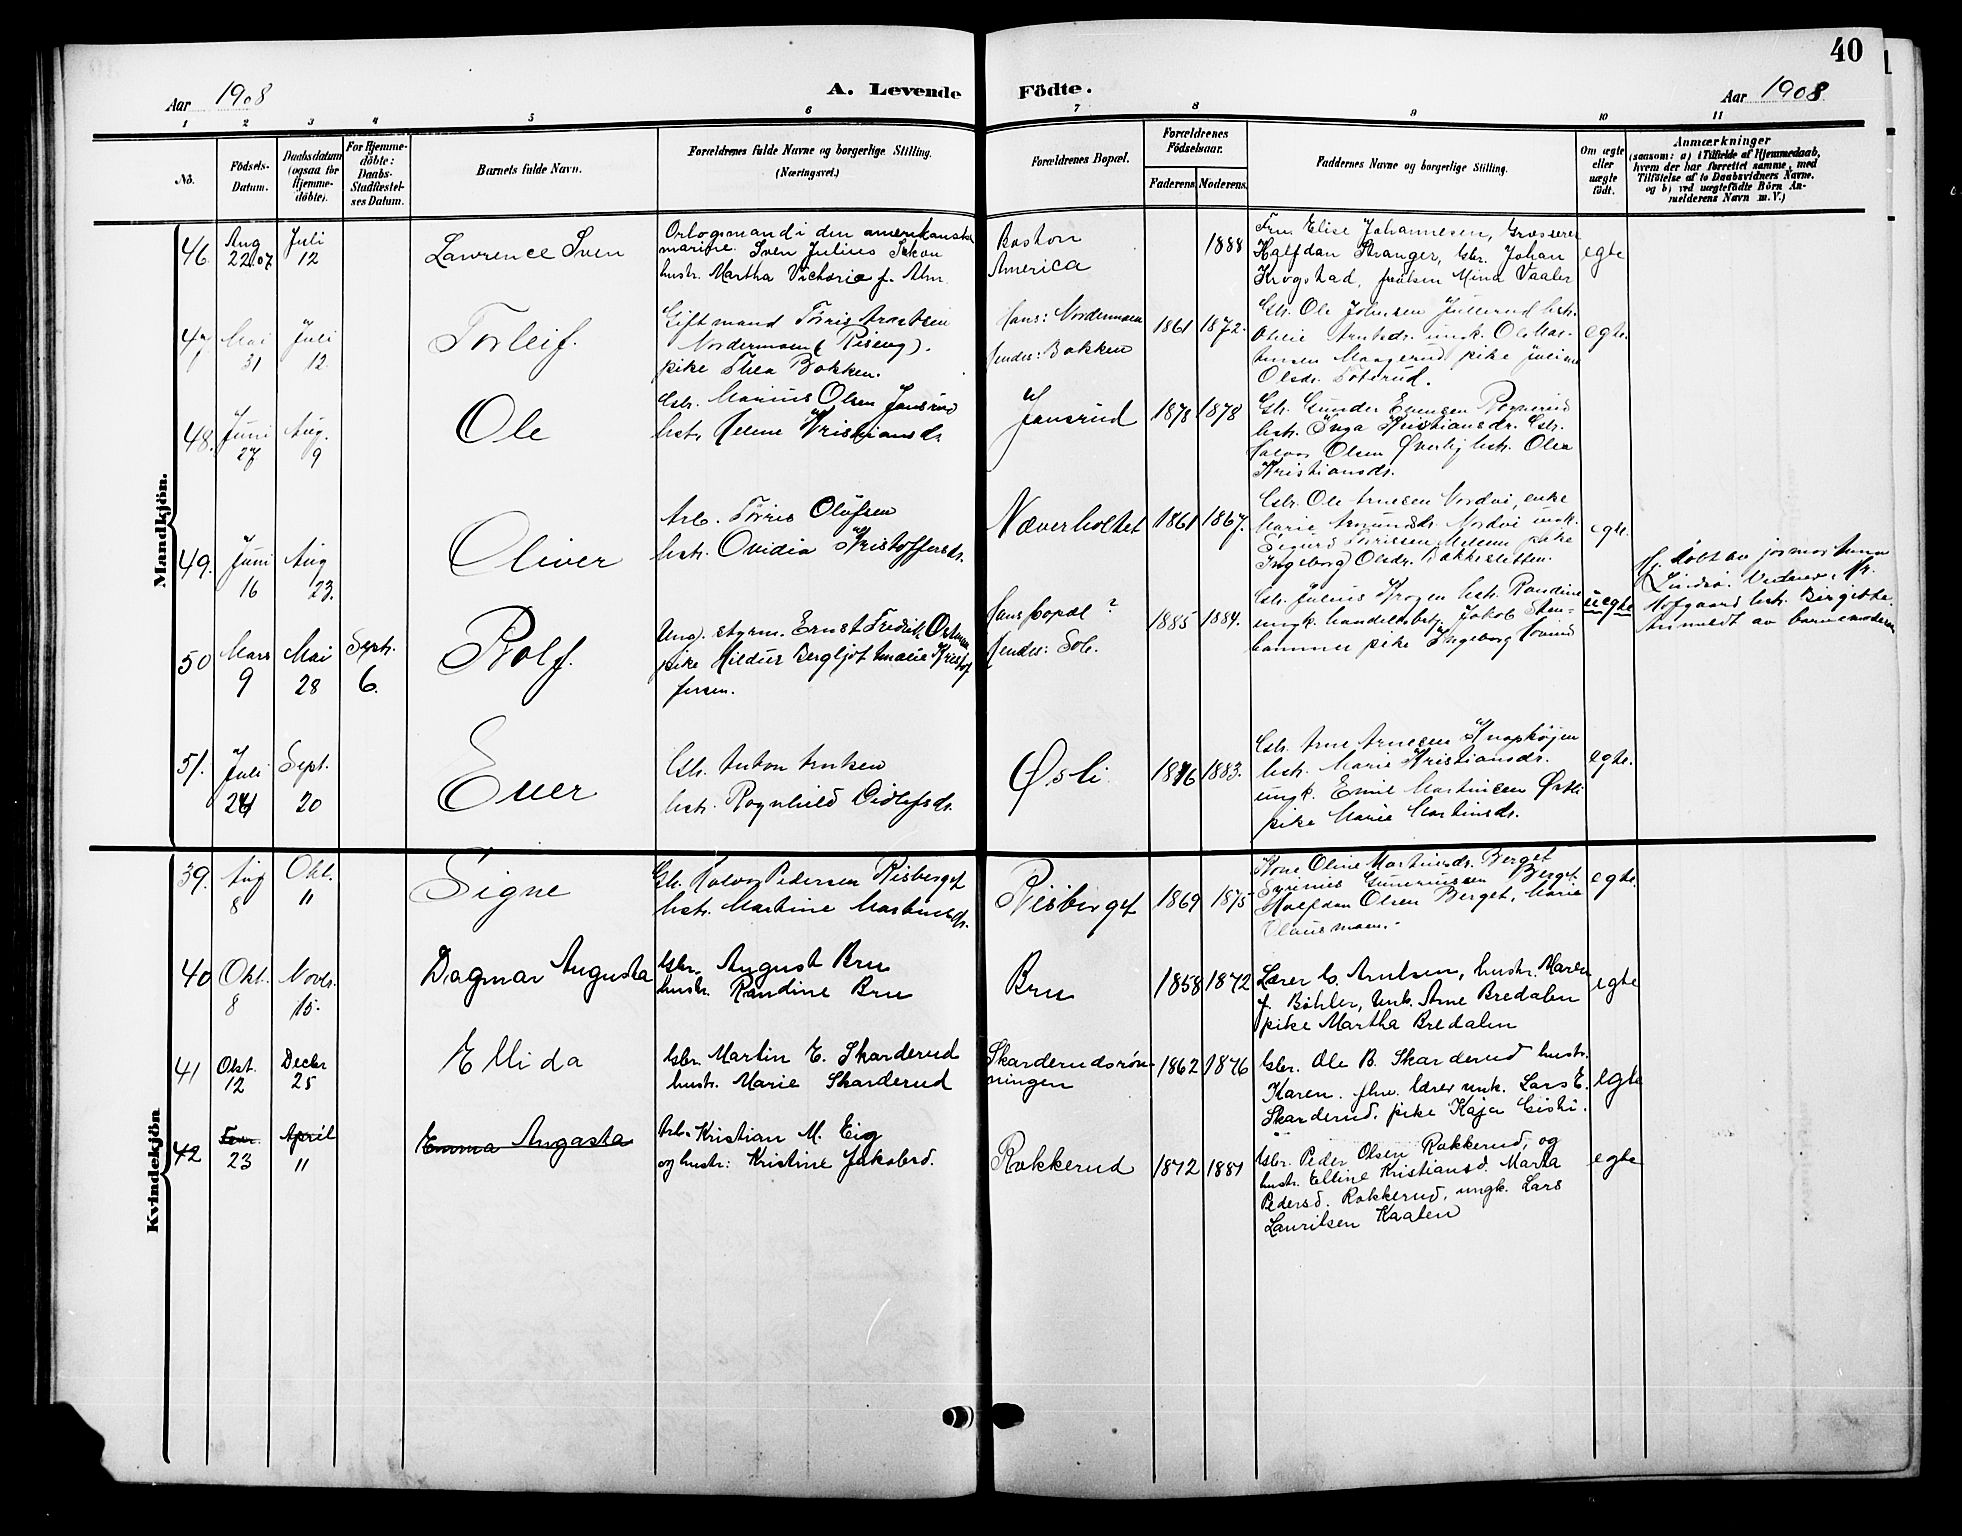 40
Aar 1908
A. Levende Födte.
Aar 1908.
1 2 3 4 5 6 7 8 9 10 11
No.
Födsels-
Datum.
Daabsdatum
(ogsaa for
Hjemme-
döbte).
For Hjemme-
döbte:
Daabs-
Stadfæstel-
ses Datum.
Barnets fulde Navn.
Forældrenes fulde Navne og borgerlige Stilling.
(Næringsvei.)
Forældrenes Bopæl.
Forældrenes
Födselsaar.
Faderens Moderens.
Faddernes Navne og borgerlige Stilling.
Om ægte
eller
uægte
födt.
Anmærkninger
(saasom: a) i Tilfælde af Hjemmedaab,
hvem der har forrettet samme, med
Tilföielse af to Daabsvidners Navne,
og b) ved uægtefödte Börn An-
melderens Navn m. V.)
Mandkjön.
46
Aug
22.07
Juli
12
Lawrence Sven
Orlogsmand i den amerikanske
marine. Sven Julius
hustr. Martha Victoria f. Alm
Boston
America
1888
Fru Elise Johannesen, Grosserer
Halfdan Stranger, Gbr. Johan
Krogstad, frøken Mina Vaaler
egte
47
Mai
31
Juli
12
Torleif.
Gift mand Tørris Arntsen
Nordermoen (Riseng).
pike Thea Bakken.
Hans: Nordermoen
Hendes: Bakken
1861 1872.
Gbr. Ole Johnsen Jullerud hstr.
Arntsdr. ungk. Ole Mar-
tinsen Maagerud pike Juline
Olsdr.
egte.
48.
Juni
27
Aug.
9
Ole
Gbr. Marius Olsen Jansrud
hstr. Helene Kristiansdr.
Jansrud
1878 1878
Gbr. Gunder Evensen Rognerud
hstr. Inga Kristiansdr. Gbr.
Halvor Olsen Øverby hstr. Olea
Kristiansdr.
49.
Juni
16
Aug
23.
Oliver
Arb. Tørris Olufsen
hstr. Ovidia Kristoffersdr.
Næverholtet
1861 1867.
Gbr. Ole Arnesen Nordvi, enke
Marie Amundsdr. Nordvi ungk.
Sigurd Tørrissen Melem pike
Ingeborg Olsdr. Bakkesletten.
egte.
50
Mars
9
Mai
28
Sept.
6.
Rolf.
Ung. styrm. Ernst Fredrik
pike Hildur Bergljot Amalie Kristof
fersen.
Hans bopæl ?
Hendes: Sole.
1885 1884.
Gbr. Julius Krogen hstr. Randine
ungk. handelsbetj. Jakob Sten-
hammer pike Ingeborg
uegte
Hj. døbt av jormor Anna
Vidner:
Hofgaard hstr. Birgitte.
Anmeldt av barnemoderen
51.
Juli
24
Sept.
20
Euer
Gbr. Anton Arntsen
hstr. Rognhild Eidlefsdr.
Øsli
1876 1883.
Gbr. Arne Arnesen Knaphøjen
hstr. Marie Kristiansdr.
ungk. Emil Martinsen Øsli
pike Marie Martinsdr.
egte.
Kvindekjön
39.
Aug
8
Okt.
11
Signe
Gbr. Halvor Pedersen Risberget
hstr. Martine Martinsdr.
Risberget
1869 1875
Kone Oline Martinsdr. Berget
Guneriussen Berget
Halfdan Olsen Berget, Marie
Olausmoen.
egte.
40
Okt.
8
Novbr.
15.
Dagmar Augusta
Gbr. August Bru
hustr. Randine Bru
Bru
1858 1872
Lærer C. Arntsen, hustr. Maren
f. Bøhler, unk. Arne Bredalen
pike Martha Bredalen
egte
41
Okt.
12
Decbr
25
Ellida
Gbr. Martin E. Skarderud
hustr. Marie Skarderud
Skarderudsrøn-
ningen
1862 1876
Gbr. Ole B. Skarderud hustr.
Karen. fhv. lærer unk. Lars E.
Skarderud. pike Kaja Gisti.
egte
42
Febr.
23
April
11
Emma Augusta
Arb. Kristian M. Eig
og hustr: Kristine Jakobsd.
Rokkerud
1872 1881
Gbr. Peder Olsen Rokkerud, og
hustr. Elline Kristiansd. Marta
Pedersd. Rokkerud, ungk. Lars
Lauritsen Kaaten
egte